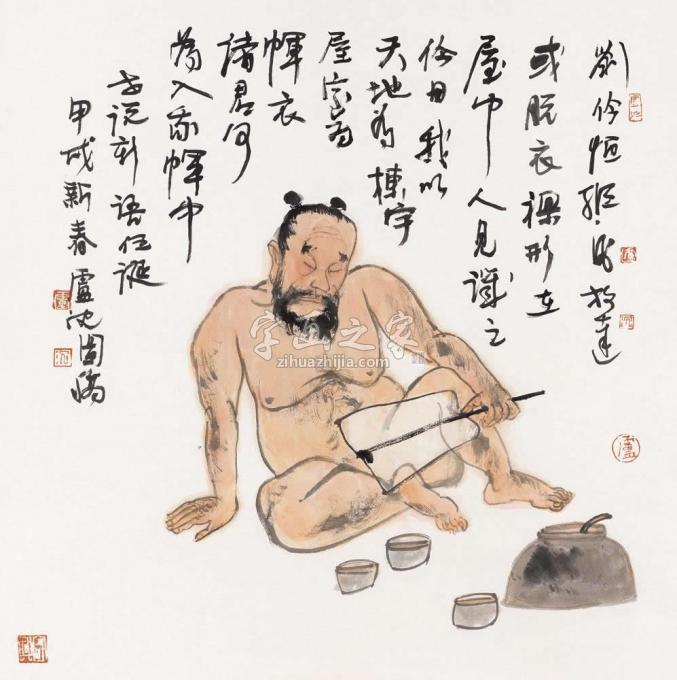 劉伶恒縱酒放達
或脱衣裸形在
屋中人見譏之
伶曰我以
天地為棟宇
屋室為
幝衣
諸君何
為入我幝中
世説新語任誕
甲戌新春盧沈
字画之家
zihuazhijia.com
盧